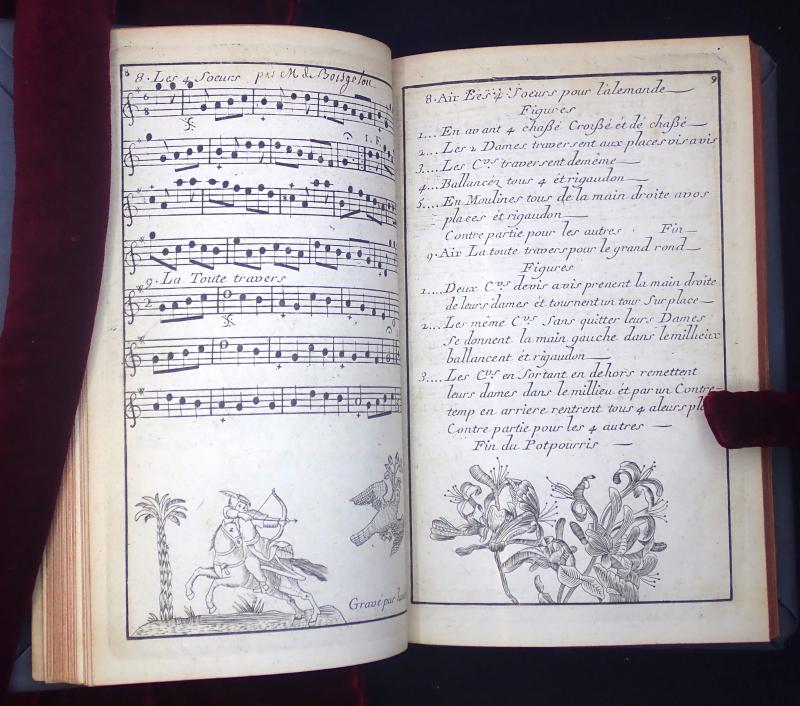 8
8. Les 4 Soeurs par M de Boisgelou
6
8
1. F.
9. La Toute travers
2
Gravé par
9
8. Air Les 4 Soeurs pour l'alemande
Figures
1... En avant 4 chaßé Croißé et dé chaßé
2... Les 2 Dames traversent aux places vis avis
3... Les C.ers traversent demême
4... Ballancéz tous 4 ét rigaudon
5... En Moulines tous de la main droite avos
places ét rigaudon
Contre partie pour les autres . Fin
9. Air La toute travers pour le grand rond
Figures
1... Deux C.ers devis avis prenent la main droite
de leurs dames ét tournent un tour Sur place
2... Les même C.ers Sans quitter leurs Dames
Se donnent la main gauche dans le millieux
ballancent ét rigaudon
3... Les C.ers en Sortant en dehors remettent
leurs dames dans le millieu ét par un Contre-
temp en arriere rentrent tous 4 aleurs
Contre partie pour les 4 autres
Fin du Potpourris